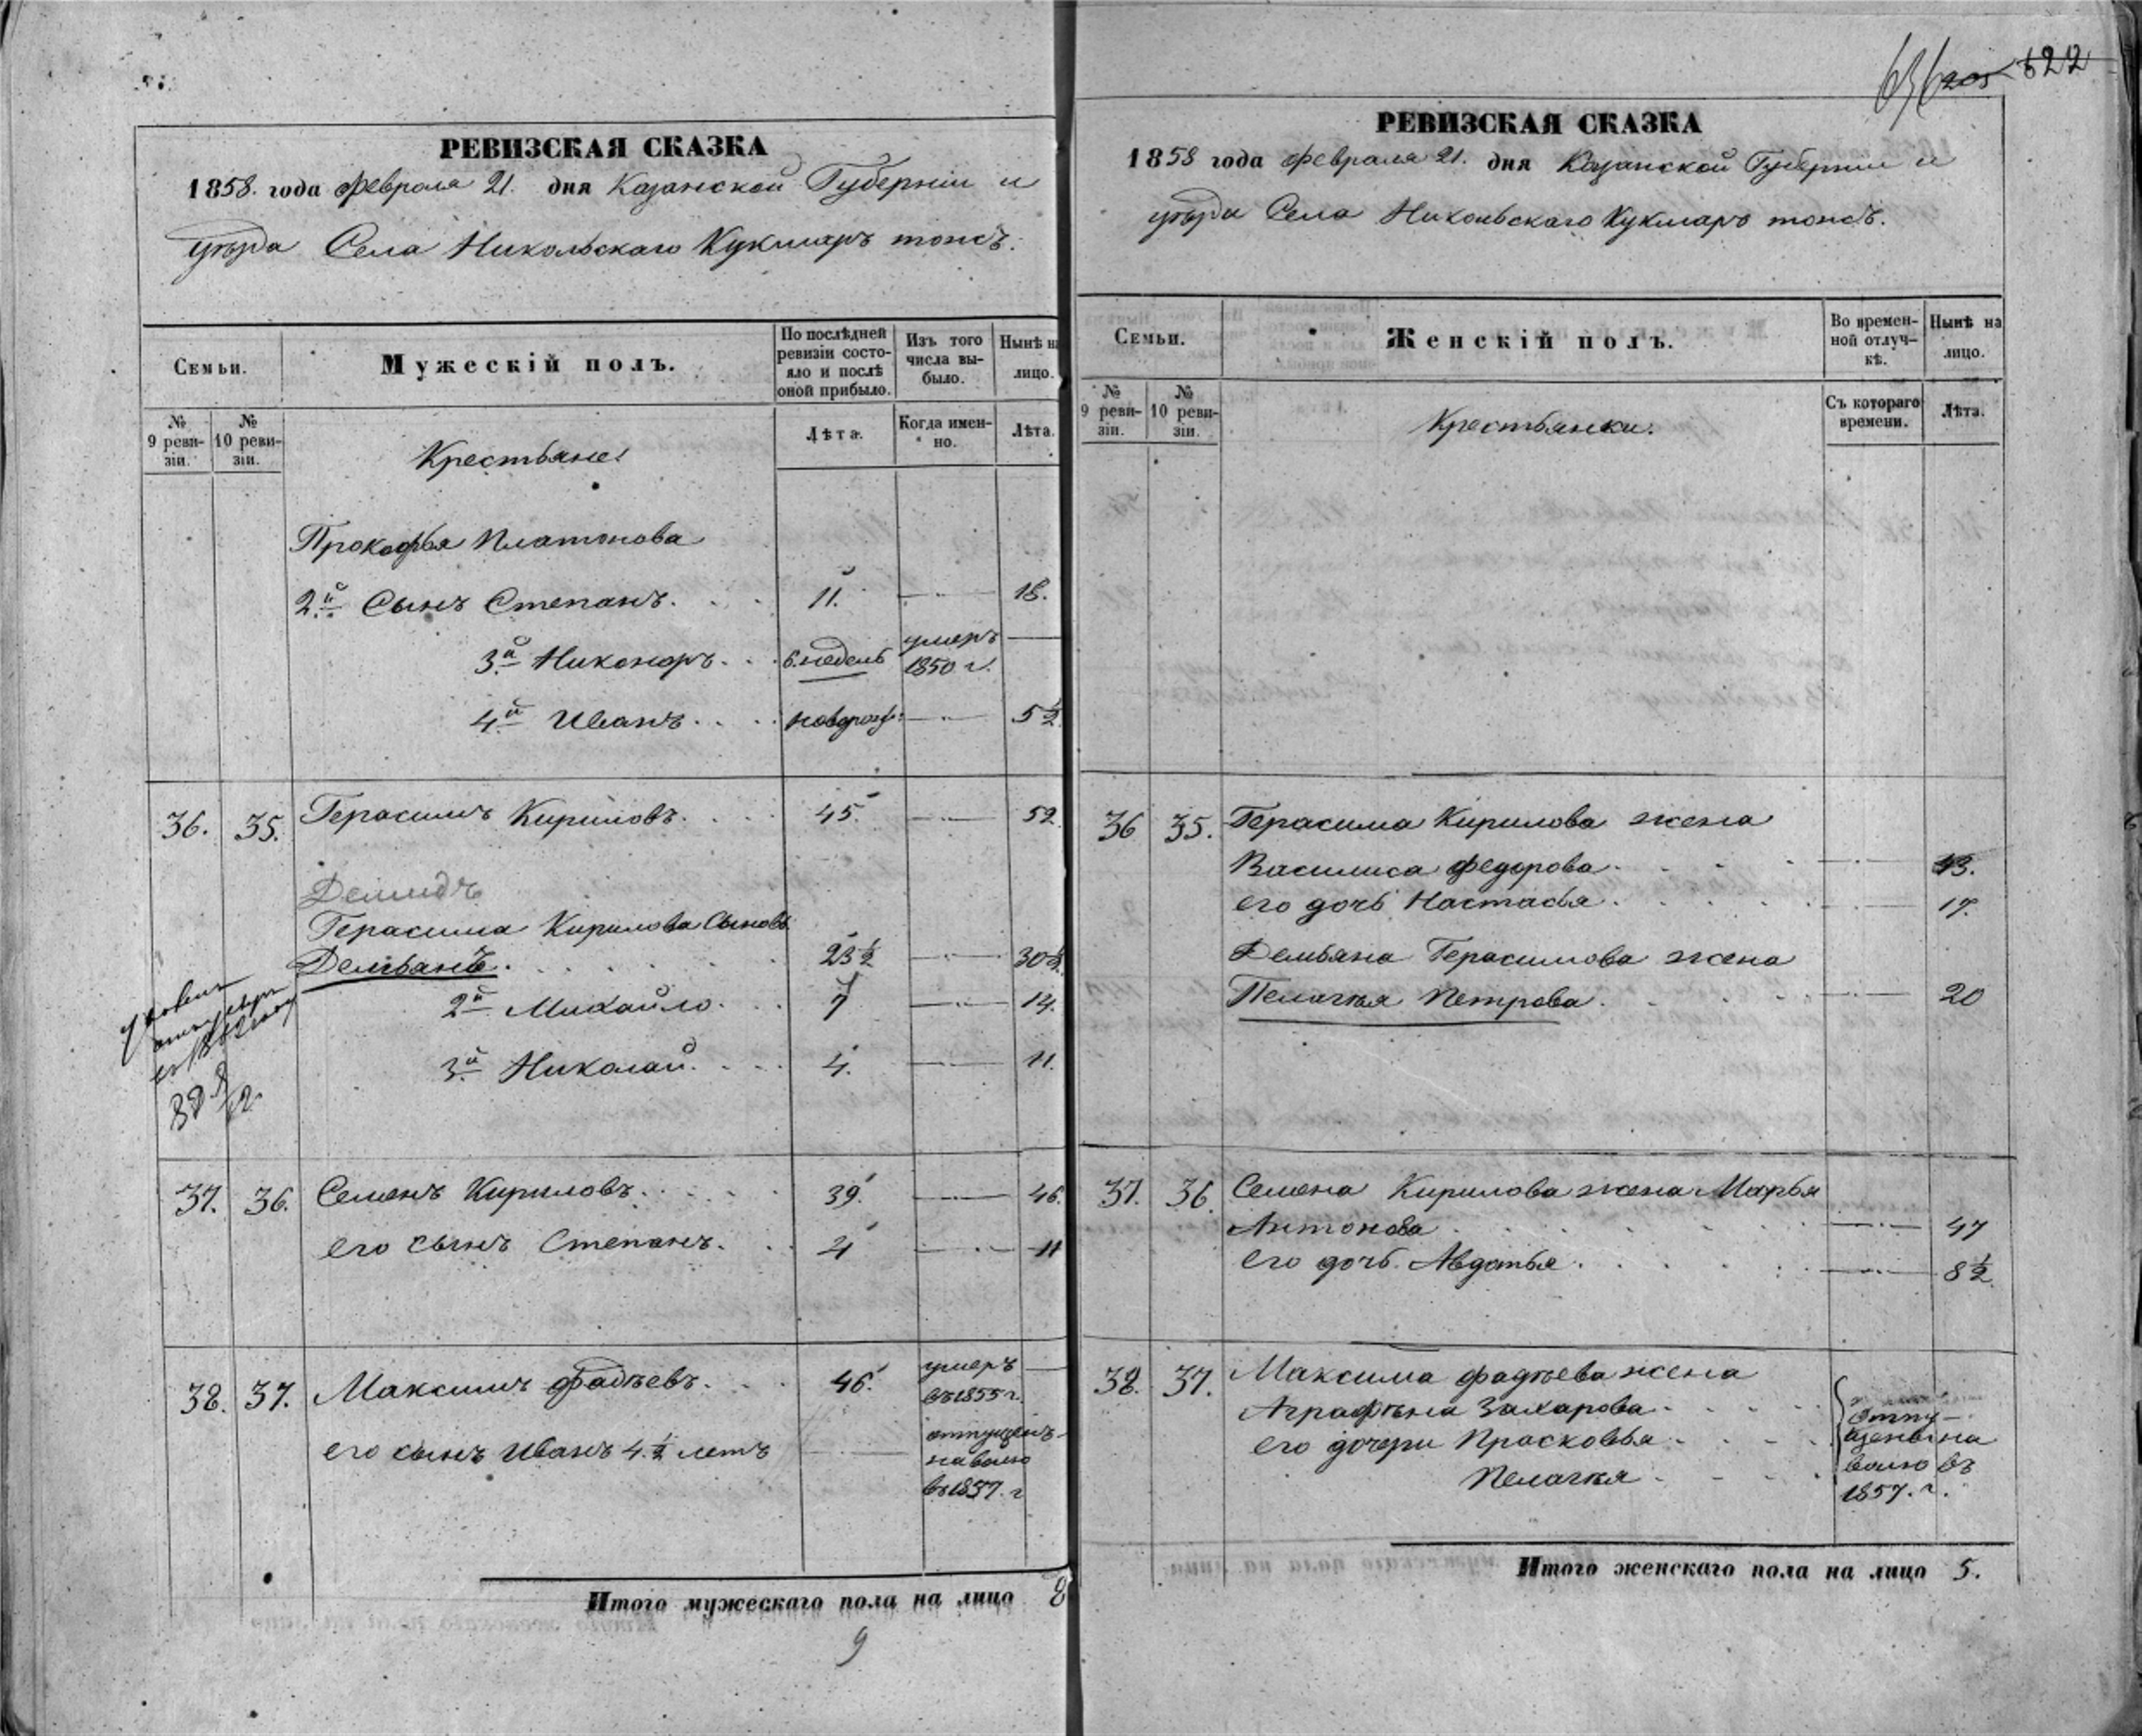 РЕВИЗСКАЯ СКАЗКА
1858. года февраля 21. дня Казанской Губерніи и
уѣзда Села Никольскаго Кукмаръ тожъ.
Семьи.
Мужескій полъ.
По послѣдней ревизіи состояло и послѣ оной прибыло.
Изъ того числа выбыло.
Нынѣ на лицо.
№ 9 ревизіи.
№ 10 ревизіи.
Крестьяне
Лѣта.
Когда именно.
Лѣта.
Прокофья Платонова
2.й Сынъ Степанъ. 11. 18.
3.й Никоноръ. 6. недель умеръ 1850 г.
4.й Иванъ. новорож: 5 ½
36. 35. Герасимъ Кириловъ. 45. 52.
Демидъ
Герасима Кирилова Сыновья
Демьянъ. 23 ½ 30 ½
2й Михайло. 7 14.
3.й Николай. 4. 11.
37. 36. Семенъ Кириловъ. 39. 46.
его сынъ Степанъ. 4 11
38. 37. Максимъ Фадѣевъ. 46. умеръ въ 1855 г.
его сынъ Иванъ 4. ½ летъ отпущенъ на волю въ 1857. г
Итого мужескаго пола на лицо 8
9
622
РЕВИЗСКАЯ СКАЗКА
1858 года февраля 21. дня Казанской Губерніи и
уѣзда Села Никольскаго Кукмаръ тожъ.
Семьи.
Женскій полъ.
Во временной отлучкѣ.
Нынѣ на лицо.
№ 9 ревизіи.
№ 10 ревизіи.
Крестьянки.
Съ котораго времени.
Лѣта.
36 35. Герасима Кирилова жена
Василиса Федорова. 43.
его дочь Настасья. 17.
Демьяна Герасимова жена
Пелагея Петрова. 20
37. 36. Семена Кирилова жена Марья
Антонова 47
его дочь Авдотья. 8 ½
38. 37. Максима Фадѣева жена
Аграфѣна Захарова
его дочери Прасковья
Пелагея
отпущены на волю въ 1857. г.
Итого женскаго пола на лицо 5.